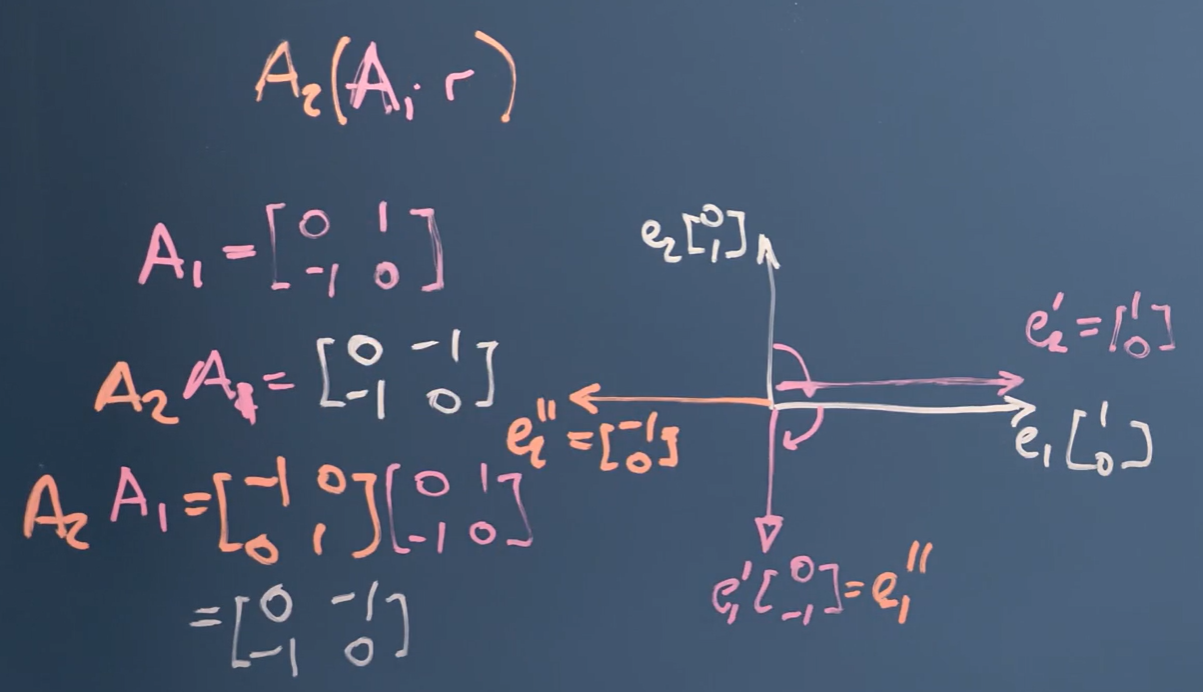 A₂(A₁·r)
A₁ = [0 1; -1 0]
A₂ A₁ = [0 -1; -1 0]
A₂ A₁ = [-1 0; 0 1][0 1; -1 0]
= [0 -1; -1 0]
e₂[0; 1]
e₂' = [1; 0]
e₁[1; 0]
e₂'' = [-1; 0]
e₁'[0; -1] = e₁''